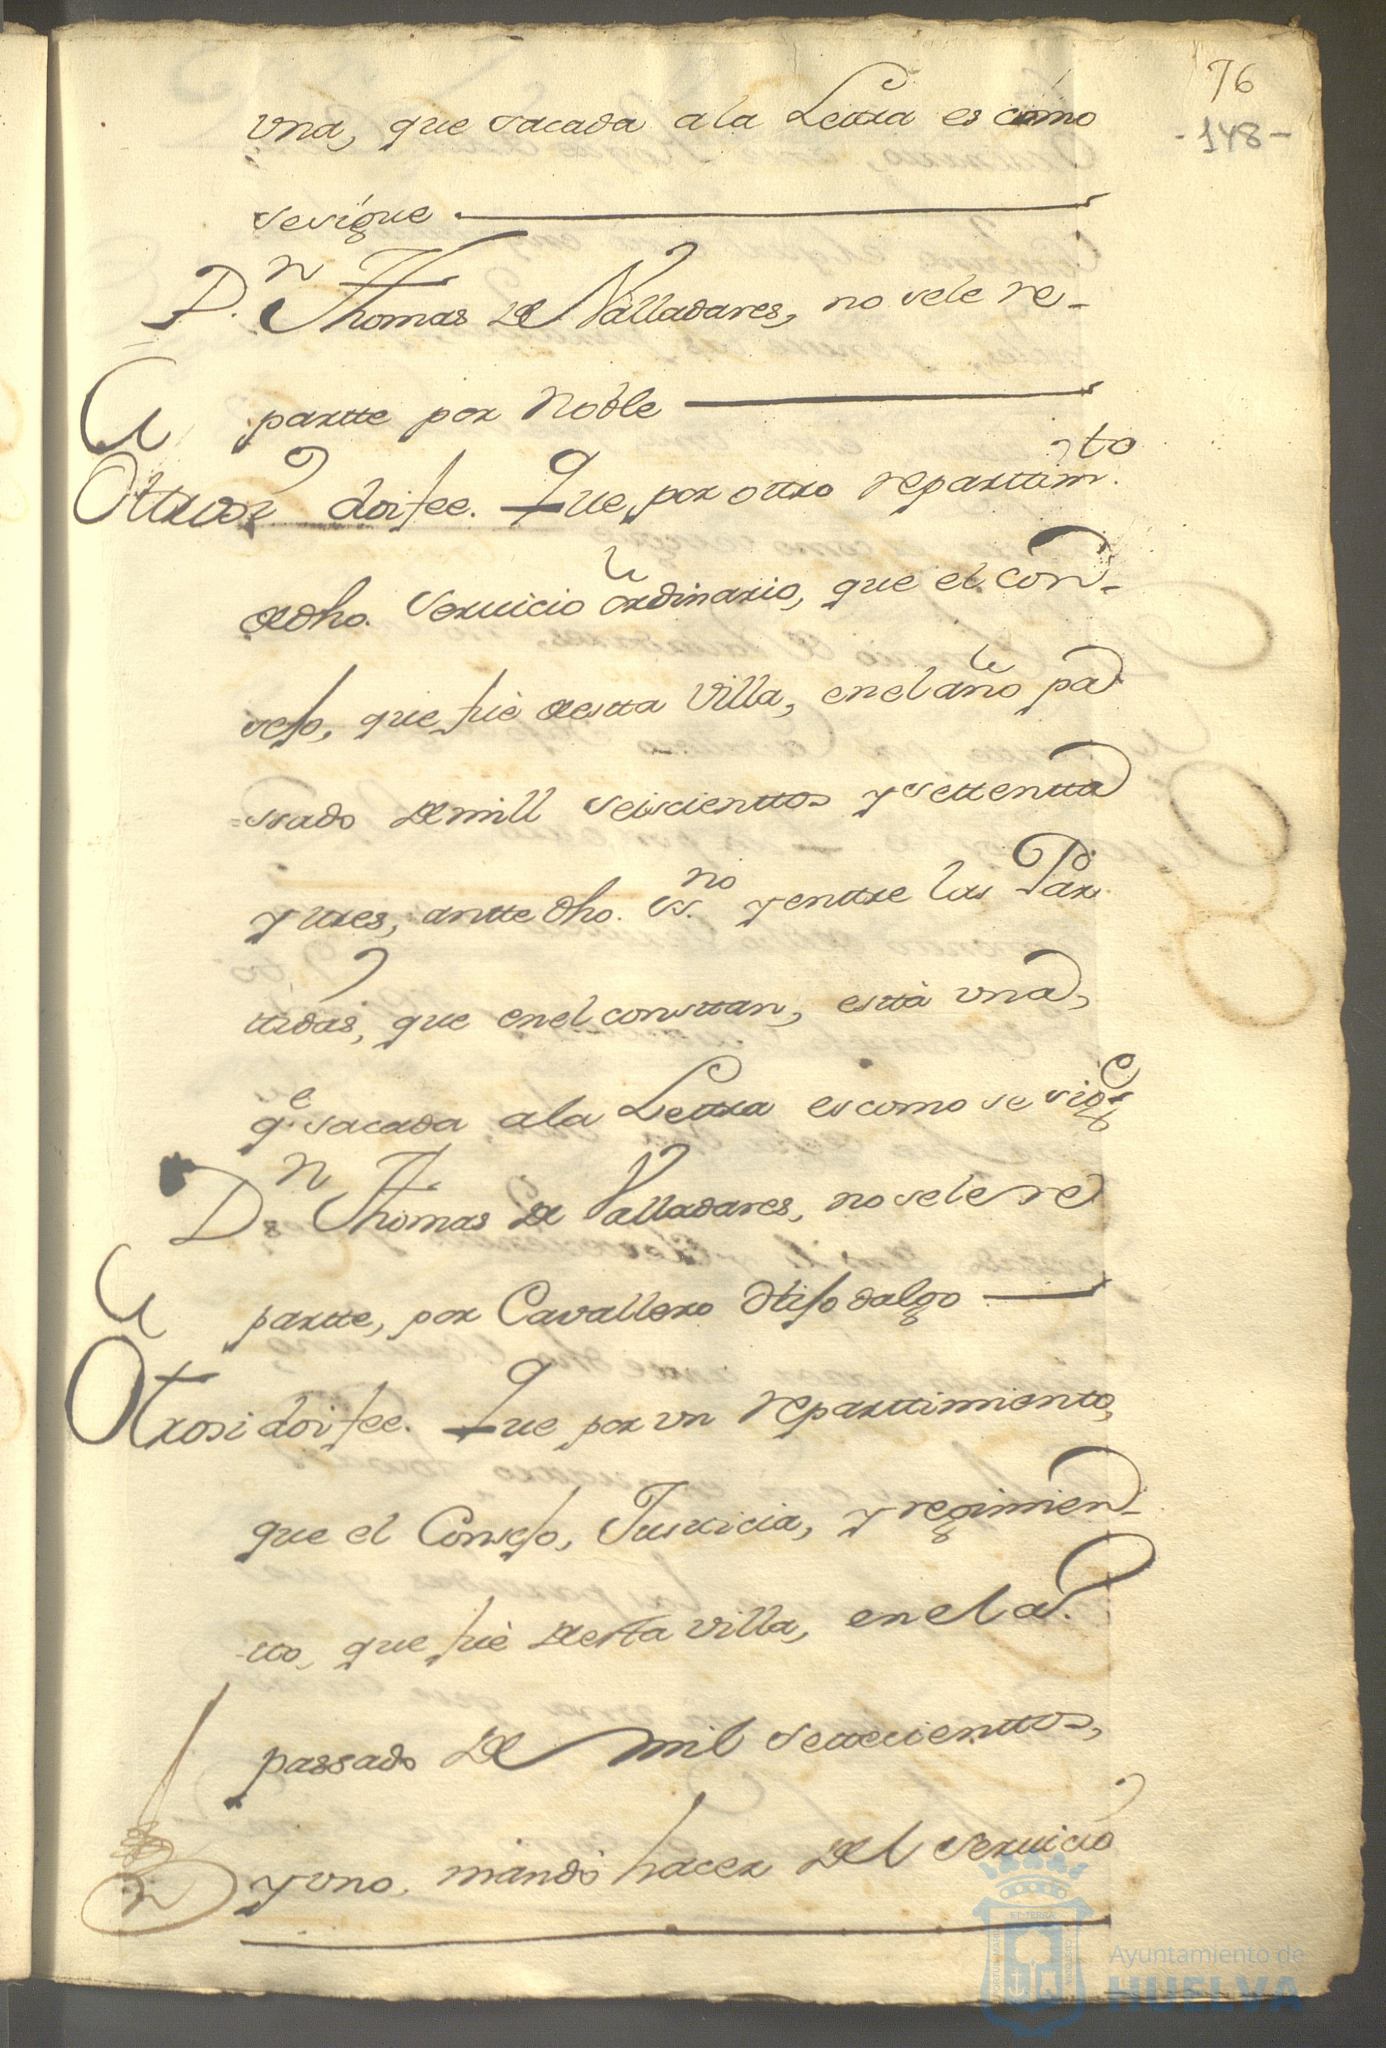 76
-148-
vna, que sacada a la Lettra es como
se sigue
D.n Thomas de Valladares, no se le re-
partte por Noble
Ottrosi doi fee. Que por ottro reparttim.to
de dho. Seruicio ordinario, que el con-
sejo, que fué de estta Villa, en el año pa
ssado de mill seiscienttos y settentta
y ttres, antte dho. ess.no y enttre las Par
ttidas, que en el consttan, esttà vna,
q.e sacada a la Lettra es como se sigue
D.n Thomas de Valladares, no se le re
partte, por Cavallero Hijo dalgo
Otrosi doi fee. Que por vn reparttimiento,
que el Consejo, Justticia, y regimien-
tto, que fué de esta villa, en el a.o
passado de mil settecienttos,
y vno, mandò hacer del seruicio
Ayuntamiento de
HUELVA